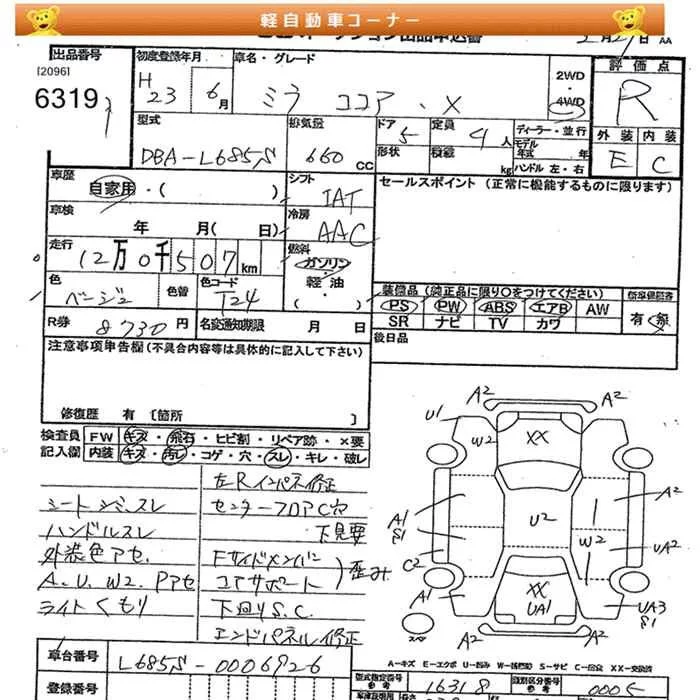 軽自動車コーナー
2月27日 AA
出品番号
[2096]
6319
初度登録年月
H 23 6月
車名・グレード
ミラ ココア ・ X
2WD
・
4WD
評価点
R
外装 内装
E C
型式
DBA-L685S
排気量
660 CC
ドア 5
形状
定員 4人
積載 kg
ディーラー・並行
モデル年式 年
ハンドル 左・右
車歴
自家用・( )
シフト
IAT
セールスポイント (正常に機能するものに限ります)
車検
年 月( 日)
冷房
AAC
走行
12万0千507km
燃料
ガソリン
・
軽油
・
( )
色
ベージュ
色替
色コード
T24
装備品 (純正品に限り○をつけてください)
PS PW ABS エアB AW
SR ナビ TV カワ
有・無
R券 8730円
名変通知期限 月 日
後日品
注意事項申告欄(不具合内容等は具体的に記入して下さい)
修復歴 有 [箇所 ]
検査員
記入欄
FW キズ・飛石・ヒビ割・リペア跡・×要
内装 キズ・汚レ・コゲ・穴・スレ・キレ・破レ
シートシミ、スレ
ハンドルスレ
外装色アセ、
A、U、W2、Pアセ
ライトくもり
左Rインパネ修正
センターフロアC穴
下見要
Fサイドメンバー
コアサポート
歪み
下廻りS.C.
エンドパネル修正
A2
A2
U1
W2
XX
A2
A1
S1
U2
W2
UA2
C2
A1
XX
UA1
UA3
S1
A2
A2
A-キズ E-エクボ U-凹み W-補修跡 S-サビ C-腐食 XX-交換済
車台番号
L685S-0006926
型式指定番号
参考
16318
類別区分番号
参考
0005
登録番号